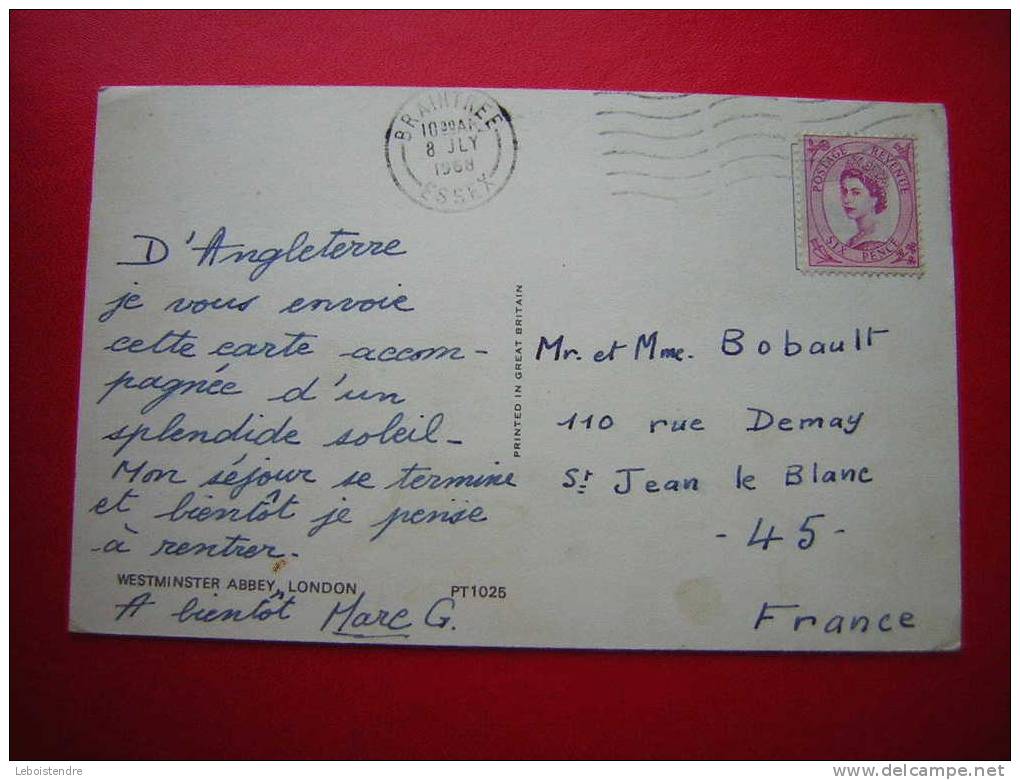 BRAINTREE
10 30 AM
8 JLY
1968
ESSEX
POSTAGE REVENUE
SIX PENCE
D'Angleterre
je vous envoie
cette carte accom-
pagnée d'un
splendide soleil-
Mon séjour se termine
et bientôt je pense
à rentrer-
WESTMINSTER ABBEY, LONDON PT1025
A bientôt Marc G.
PRINTED IN GREAT BRITAIN
Mr. et Mme. Bobault
110 rue Demay
St Jean le Blanc
- 45 -
France
Leboistendre
www.delcampe.net